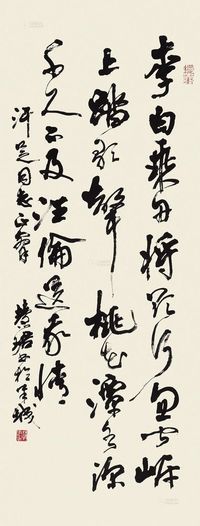 李白乘舟将欲行忽闻岸
上踏歌聲桃花潭水深
千尺不及汪倫送我情
同志正
书于